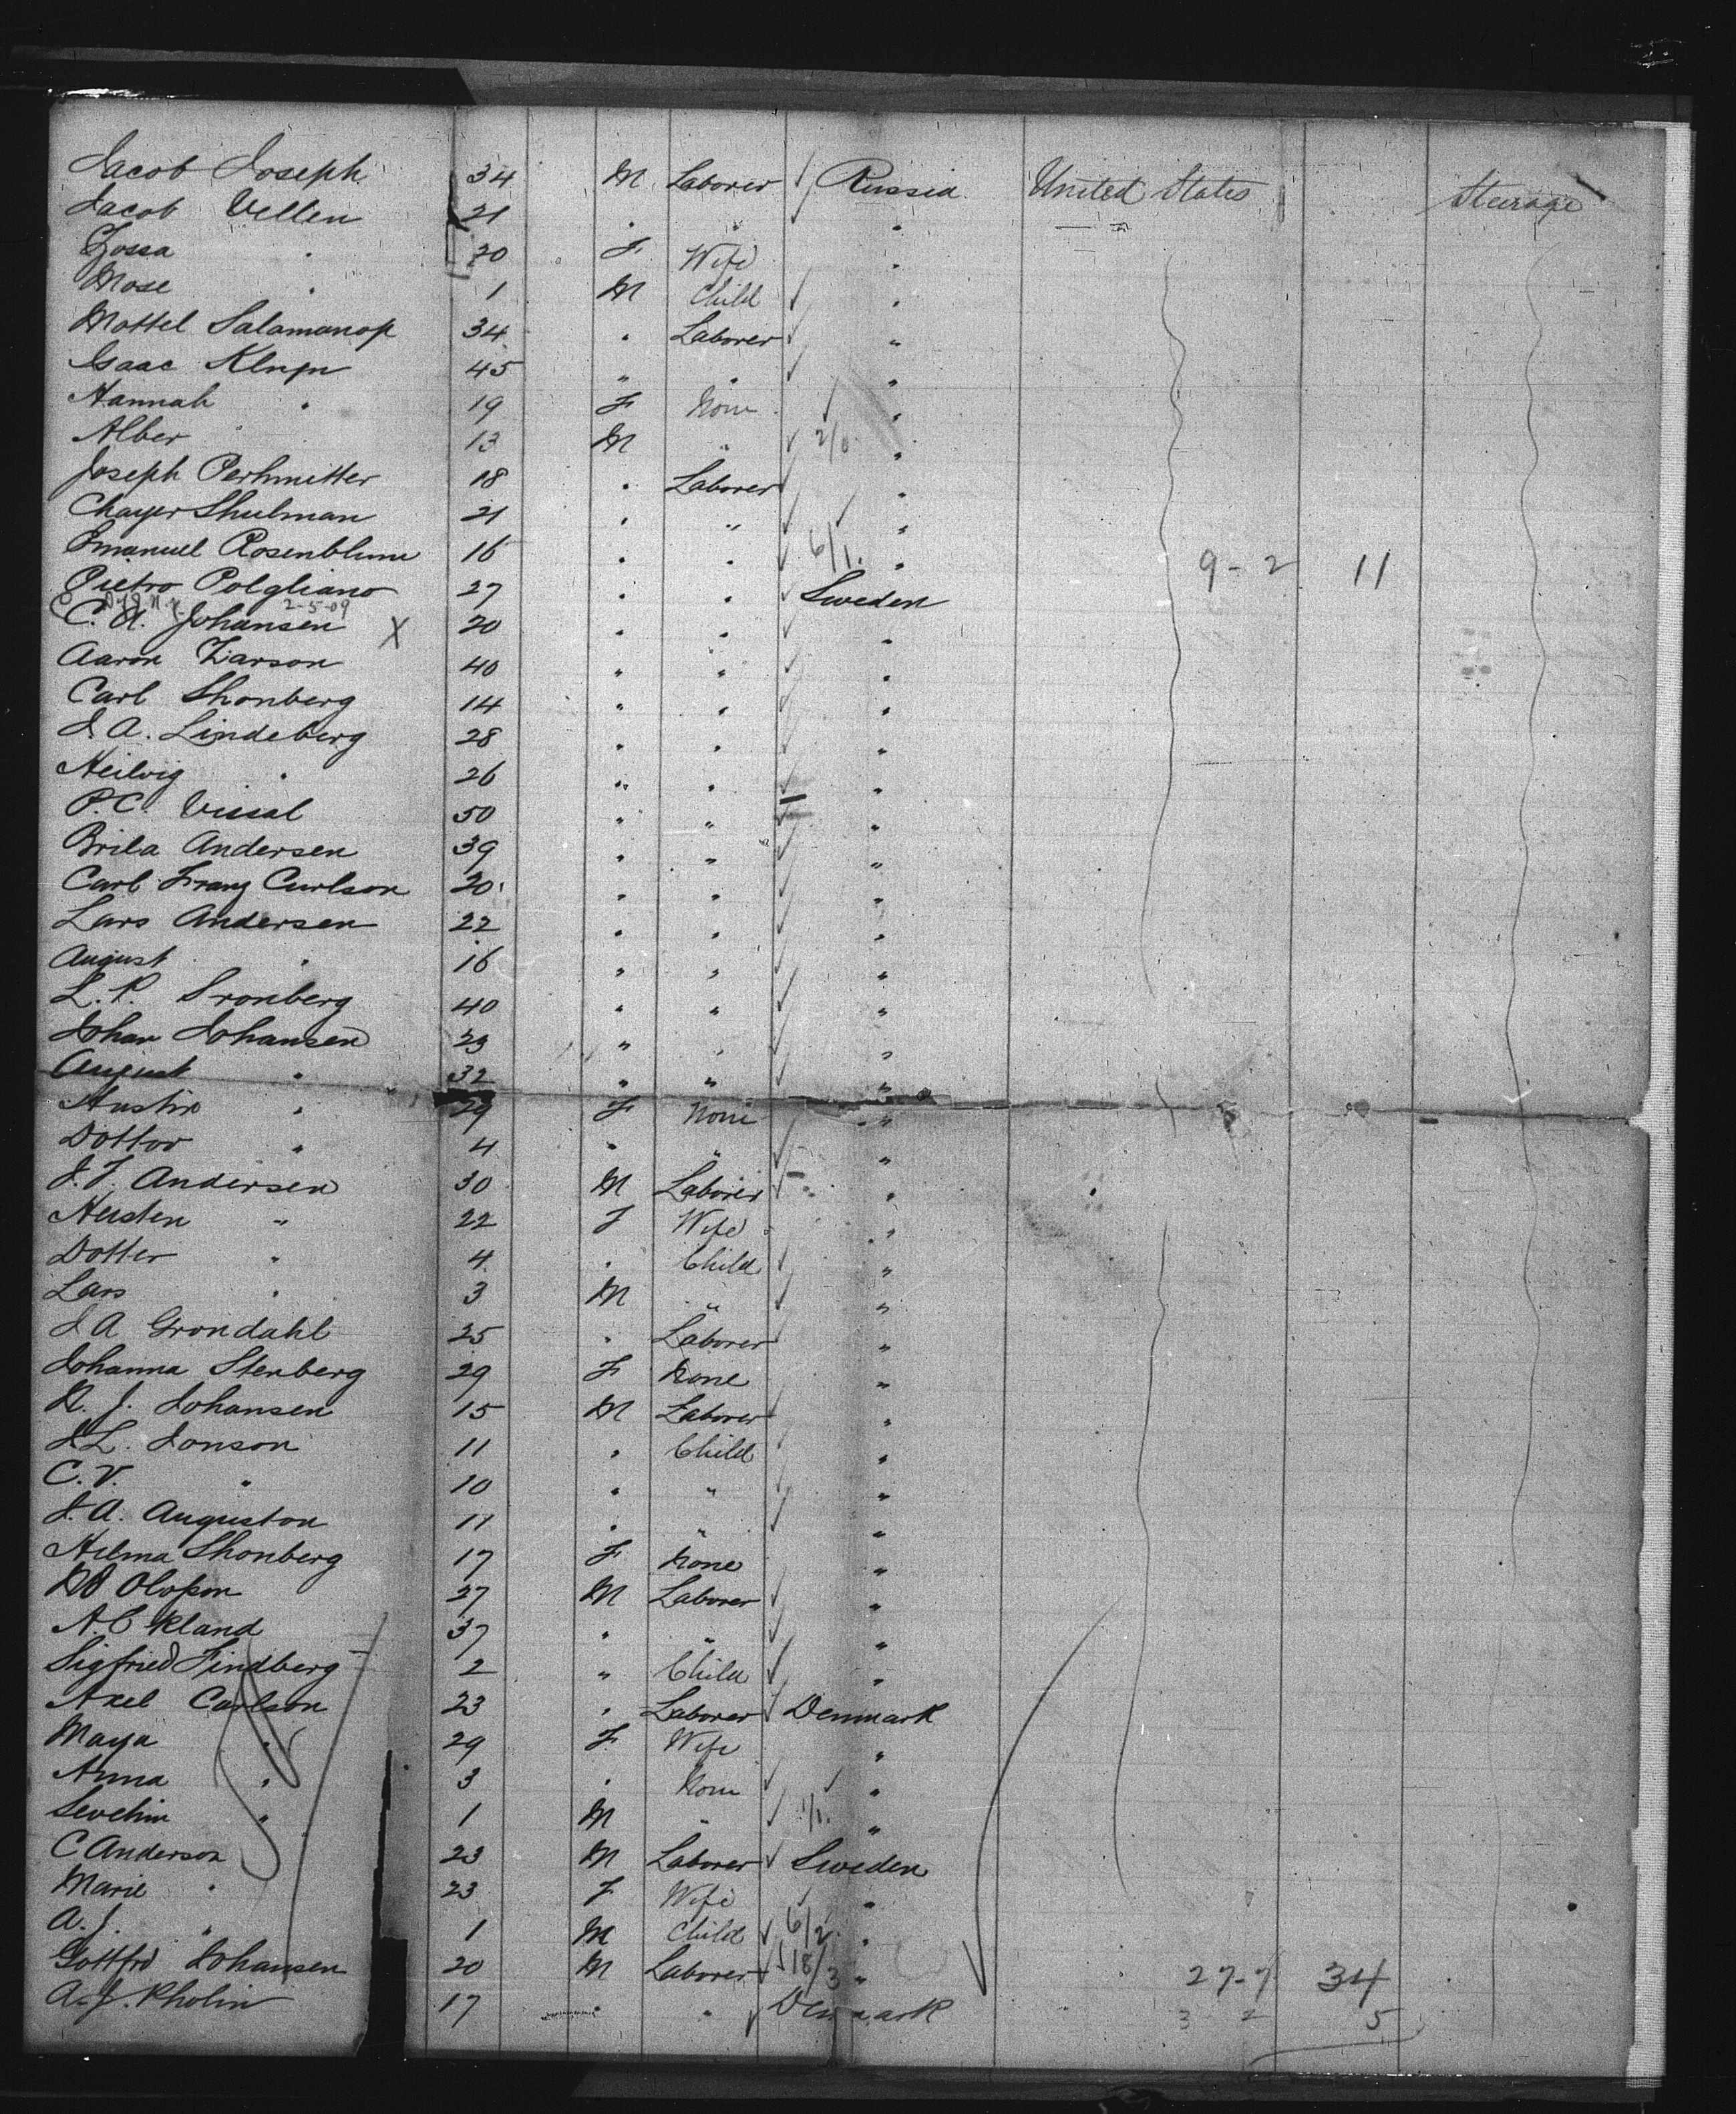 Jacob Joseph 34 M Laborer ✓ Russia United States Steerage
Jacob Vellen 21 " " "
Zossa " 20 F Wife "
Mose " 1 M Child ✓ "
Mottel Salamanop 34 " Laborer ✓ "
Isaac 45 " " ✓ "
Hannah " 19 F None ✓ "
Alber 13 M " ✓ 2/0 "
Joseph Perhmitter 18 " Laborer ✓ "
Chayer Shulman 21 " " ✓ ✓ "
Emanuel Rosenblum 16 " " ✓ 6/1. " 9-2 11
Pietro Polgliano 27 " " Sweden
2-5-09
C. A. Johansen X 20 " " ✓ "
Aaron Larson 40 " " ✓ "
Carl Shonberg 14 " " ✓ "
J A. Lindeberg 28 " " ✓ "
Heilvig " 26 " " ✓ "
P. C. Vissal 50 " " ✓ "
Brila Andersen 39 " " ✓ "
Carl Franz Curlson 20 " " ✓ "
Lars Andersen 22 " " ✓ "
August " 16 " " ✓ "
L. P. Sronberg 40 " " ✓ "
Johan Johansen 23 " " ✓ "
August " 32 " " ✓ "
Austin " 29 F None "
Dottor " 4 " " ✓ "
J. F. Andersen 30 M Laborer ✓ "
Husten " 22 F Wife "
Dotter " 4 " Child ✓ "
Lars " 3 M " ✓ "
J A Grondahl 25 " Laborer ✓ "
Johanna Stenberg 29 F None "
N. J. Johansen 15 M Laborer ✓ "
J L. Jonson 11 " Child ✓ "
C. V. " 10 " " ✓ "
J. A. Auguston 11 " " ✓ "
Hilma Shonberg 17 F None "
Olofson 27 M Laborer ✓ "
A. Ekland 37 " " ✓ "
Sigfried Findberg 2 " Child ✓ "
Axel Carlson 23 " Laborer ✓ Denmark
Maya " 29 F Wife "
Anna " 3 " None ✓ ✓ "
Sevelin " 1 M " ✓ 1/1. "
C Anderson 23 M Laborer ✓ Sweden
Marie " 23 F Wife ✓ "
A. J. " 1 M Child ✓ 6/2 "
Gottfrd Johansen 20 M Laborer ✓ 18/3 " 27-7 34
A. J. Kholin 17 " " ✓ Denmark 3 2 5